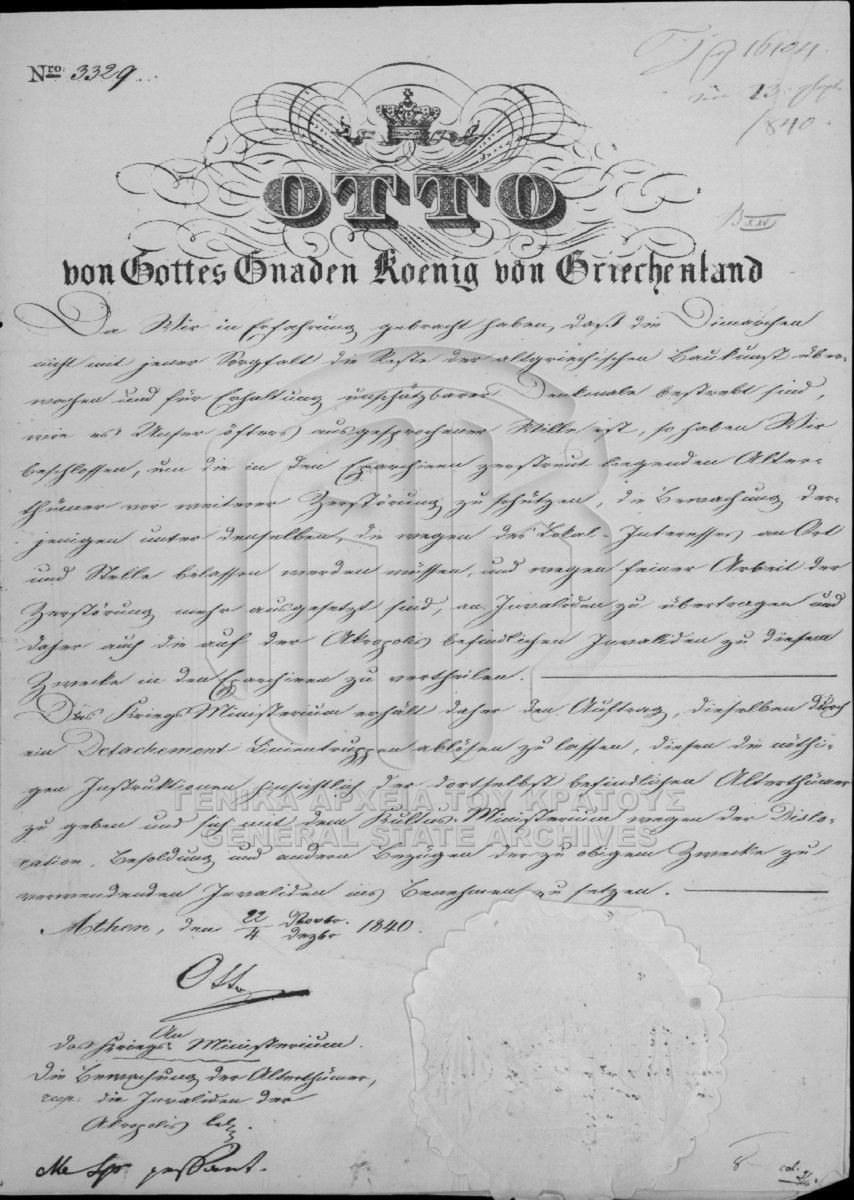 Nro. 3329
16104.
13.
1840.
OTTO
von Gottes Gnaden Koenig von Griechenland
Da Wir in Erfahrung gebracht haben, daß die Dimarchen
nicht mit jener Sorgfalt die Reste der altgriechischen Baukunst über-
wachen und für Erhaltung unschätzbarer Denkmale bestrebt sind,
wie es Unser öfters ausgesprochener Wille ist, so haben Wir
beschlossen, um die in den Eparchieen zerstreut liegenden Alter-
thümer vor weiterer Zerstörung zu schützen, die Bewachung der-
jenigen unter denselben, die wegen des Lokal-Interesses an Ort
und Stelle belassen werden müssen, und wegen feiner Arbeit der
Zerstörung mehr ausgesetzt sind, an Invaliden zu übertragen und
daher auch die auf der Akropolis befindlichen Invaliden zu diesem
Zwecke in den Eparchieen zu vertheilen.
Das Kriegs Ministerium erhält daher den Auftrag, dieselben durch
ein Detachement Linientruppen ablösen zu lassen, diesen die nöthi-
gen Instruktionen hinsichtlich der dortselbst befindlichen Alterthümer
zu geben und sich mit dem Kultus-Ministerium wegen der Dislo-
cation, Besoldung und andern Bezügen der zu obigem Zwecke zu
verwendenden Invaliden ins Benehmen zu setzen.
ΓΕΝΙΚΑ ΑΡΧΕΙΑ ΤΟΥ ΚΡΑΤΟΥΣ
GENERAL STATE ARCHIVES
Athen, den 22/4 Novbr./Dezbr 1840.
Otto
An
das Kriegs-Ministerium.
Die Bewachung der Alterthümer,
resp. die Invaliden der
Akropolis